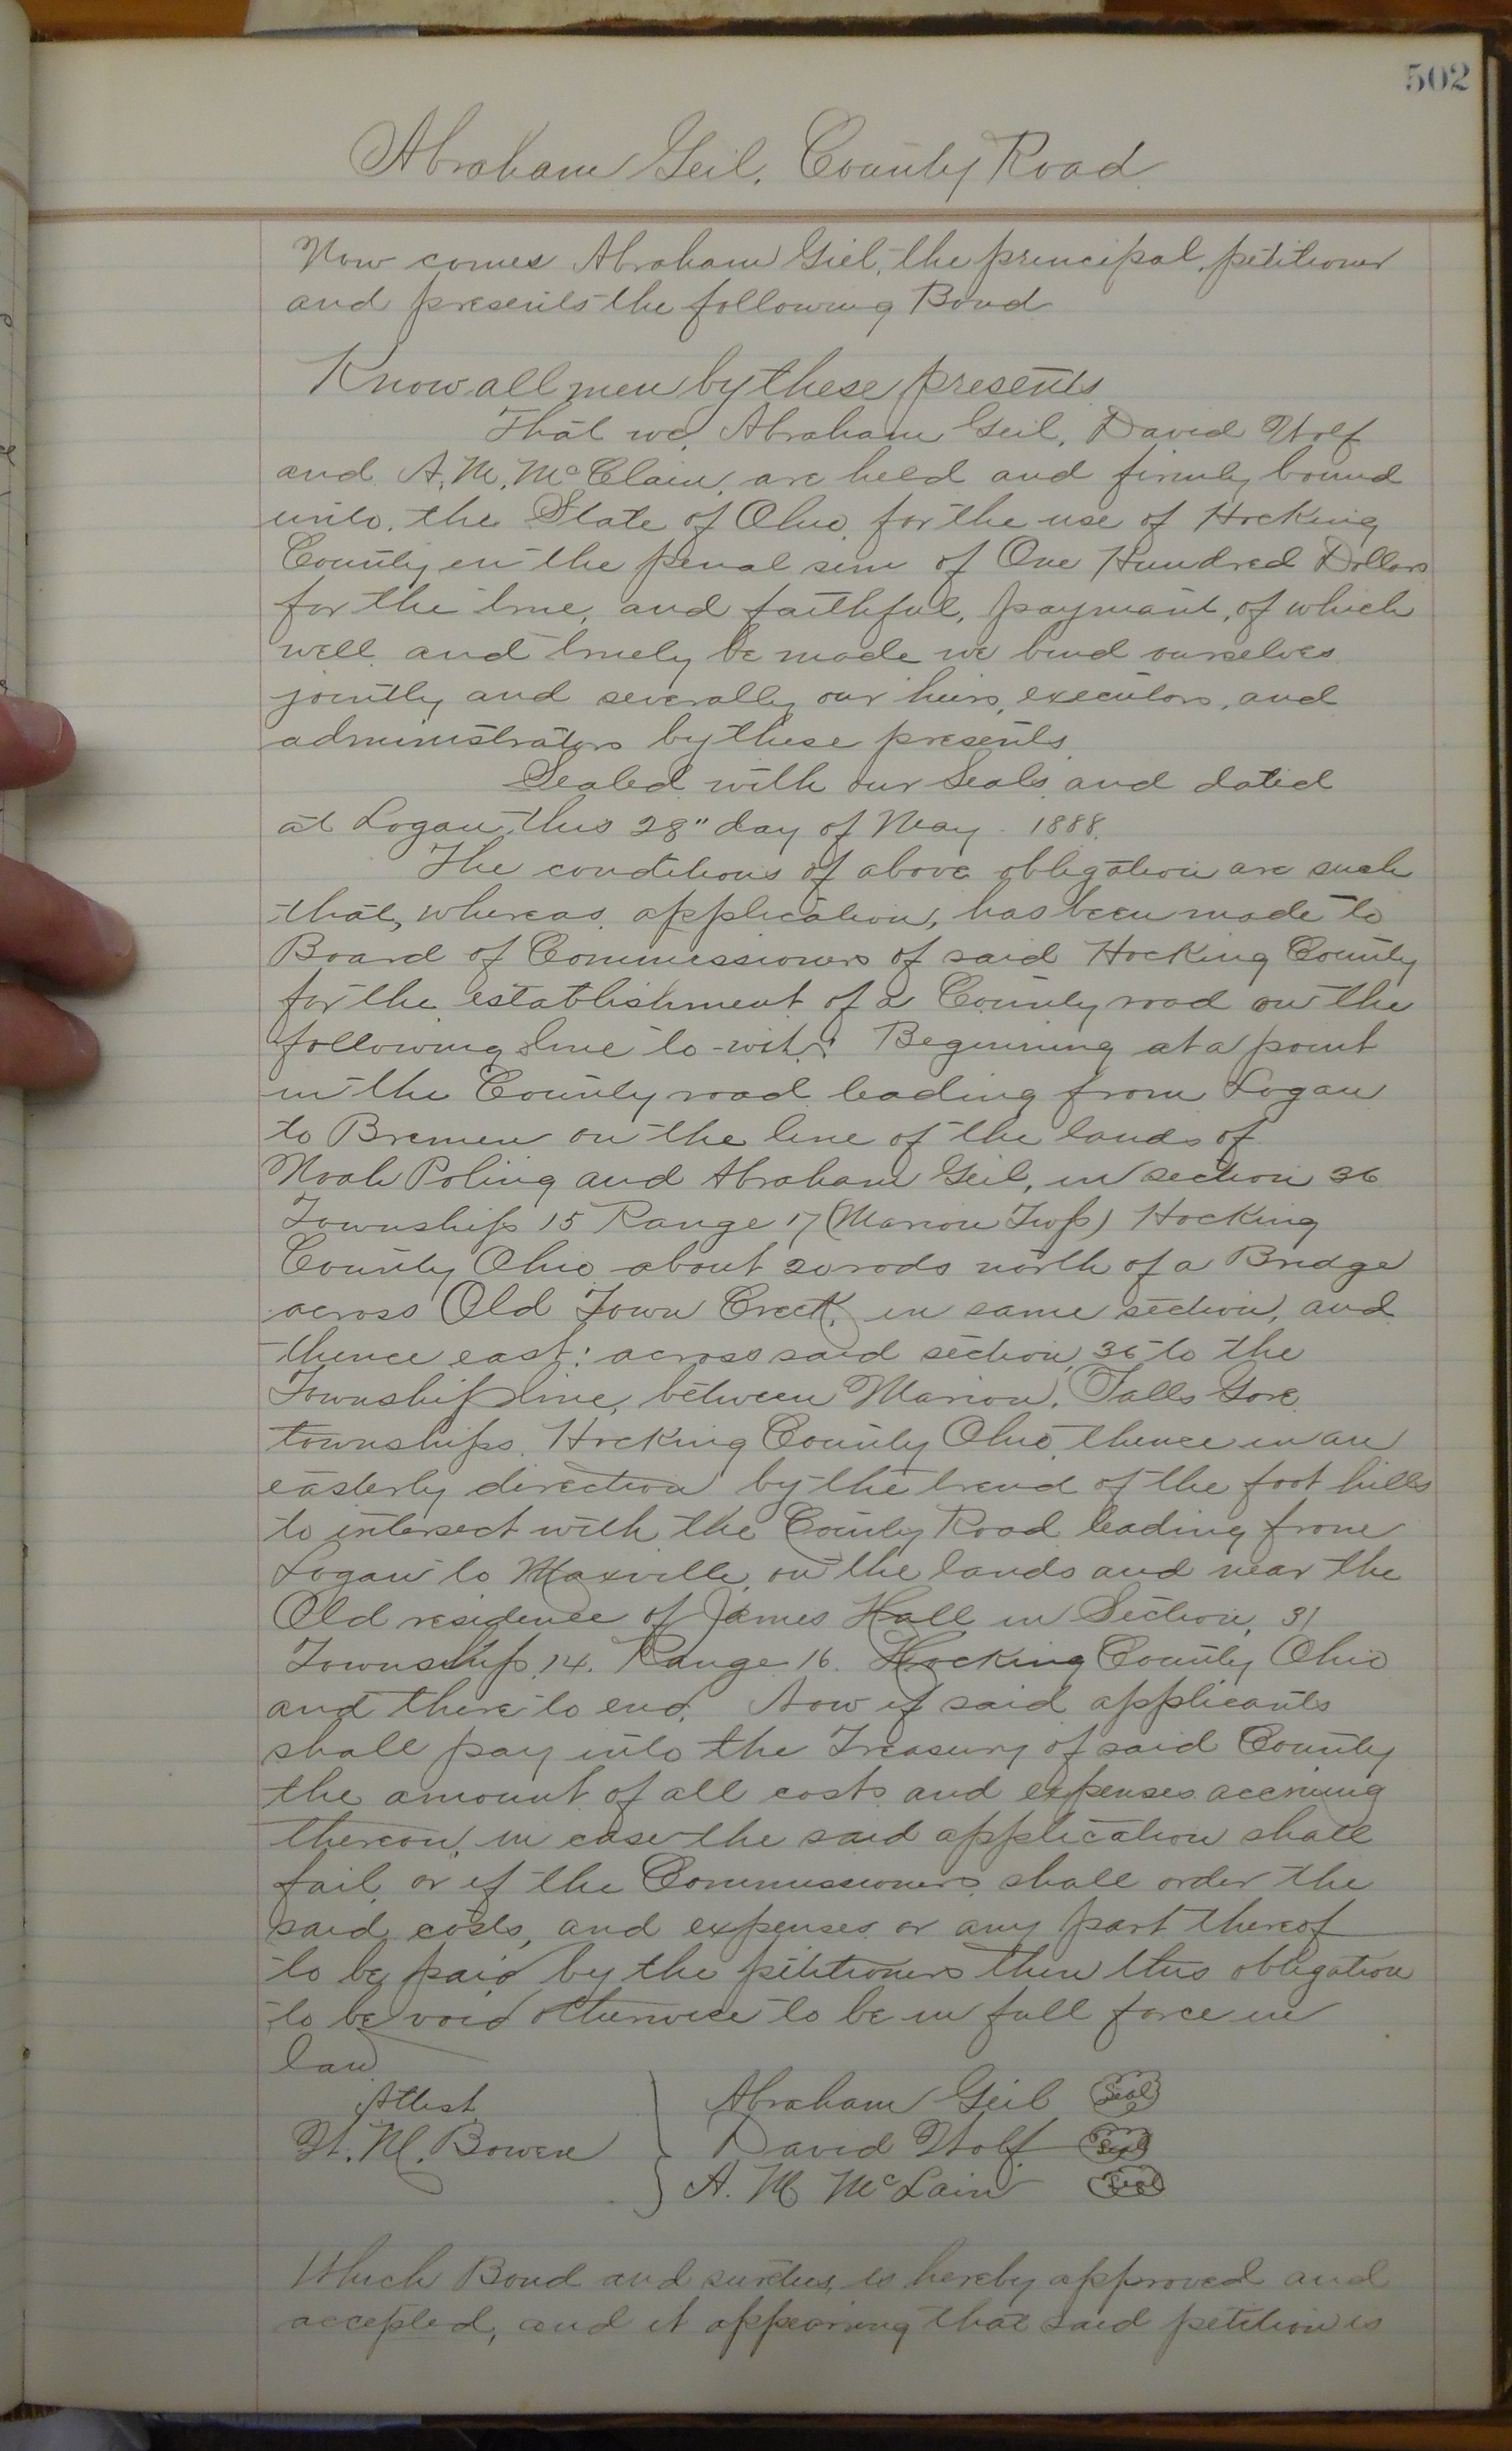 502
Abraham Geil, County Road
Now comes Abraham Giel, the principal petitioner
and presents the following Bond
Know all men by these presents
That we, Abraham Geil, David Wolf
and A. M. McClain, are held and firmly bound
unto the State of Ohio, for the use of Hocking
County in the penal sum of One Hundred Dollars
for the true, and faithful, payment, of which
well and truely be made we bind ourselves
jointly and severally our heirs, executors, and
administrators by these presents.
Sealed with our Seals and dated
at Logan, this 28" day of May 1888.
The conditions of above obligation are such
that, whereas, application, has been made to
Board of Commissioners of said Hocking County
for the establishment of a County road on the
following line to-wit: Beginning at a point
in the County road leading from Logan
to Bremen on the line of the lands of
Noah Poling and Abraham Geil, in section 36
Township 15 Range 17 (Marion Twp) Hocking
County Ohio about 20 rods north of a Bridge
across Old Town Creek, in same section, and
thence east: across said section, 36 to the
Township line, between Marion, Falls Gore
townships. Hocking County Ohio, thence in an
easterly direction by the trend of the foot hills
to intersect with the County Road leading from
Logan to Maxville, on the lands and near the
Old residence of James Hall in Section, 31
Township 14. Range 16. Hocking County Ohio
and there to end. Now if said applicants
shall pay into the Treasury of said County
the amount of all costs and expenses accruing
thereon, in case the said application shall
fail, or if the Commissioners, shall order the
said costs, and expenses or any part thereof
to be paid by the petitioners then this obligation
to be void otherwise to be in full force in
law
Attest
W. M. Bowen
Abraham Geil Seal
David Wolf Seal
A. M McLain Seal
Which Bond and sureties, is hereby approved and
accepted, and it appearing that said petition is